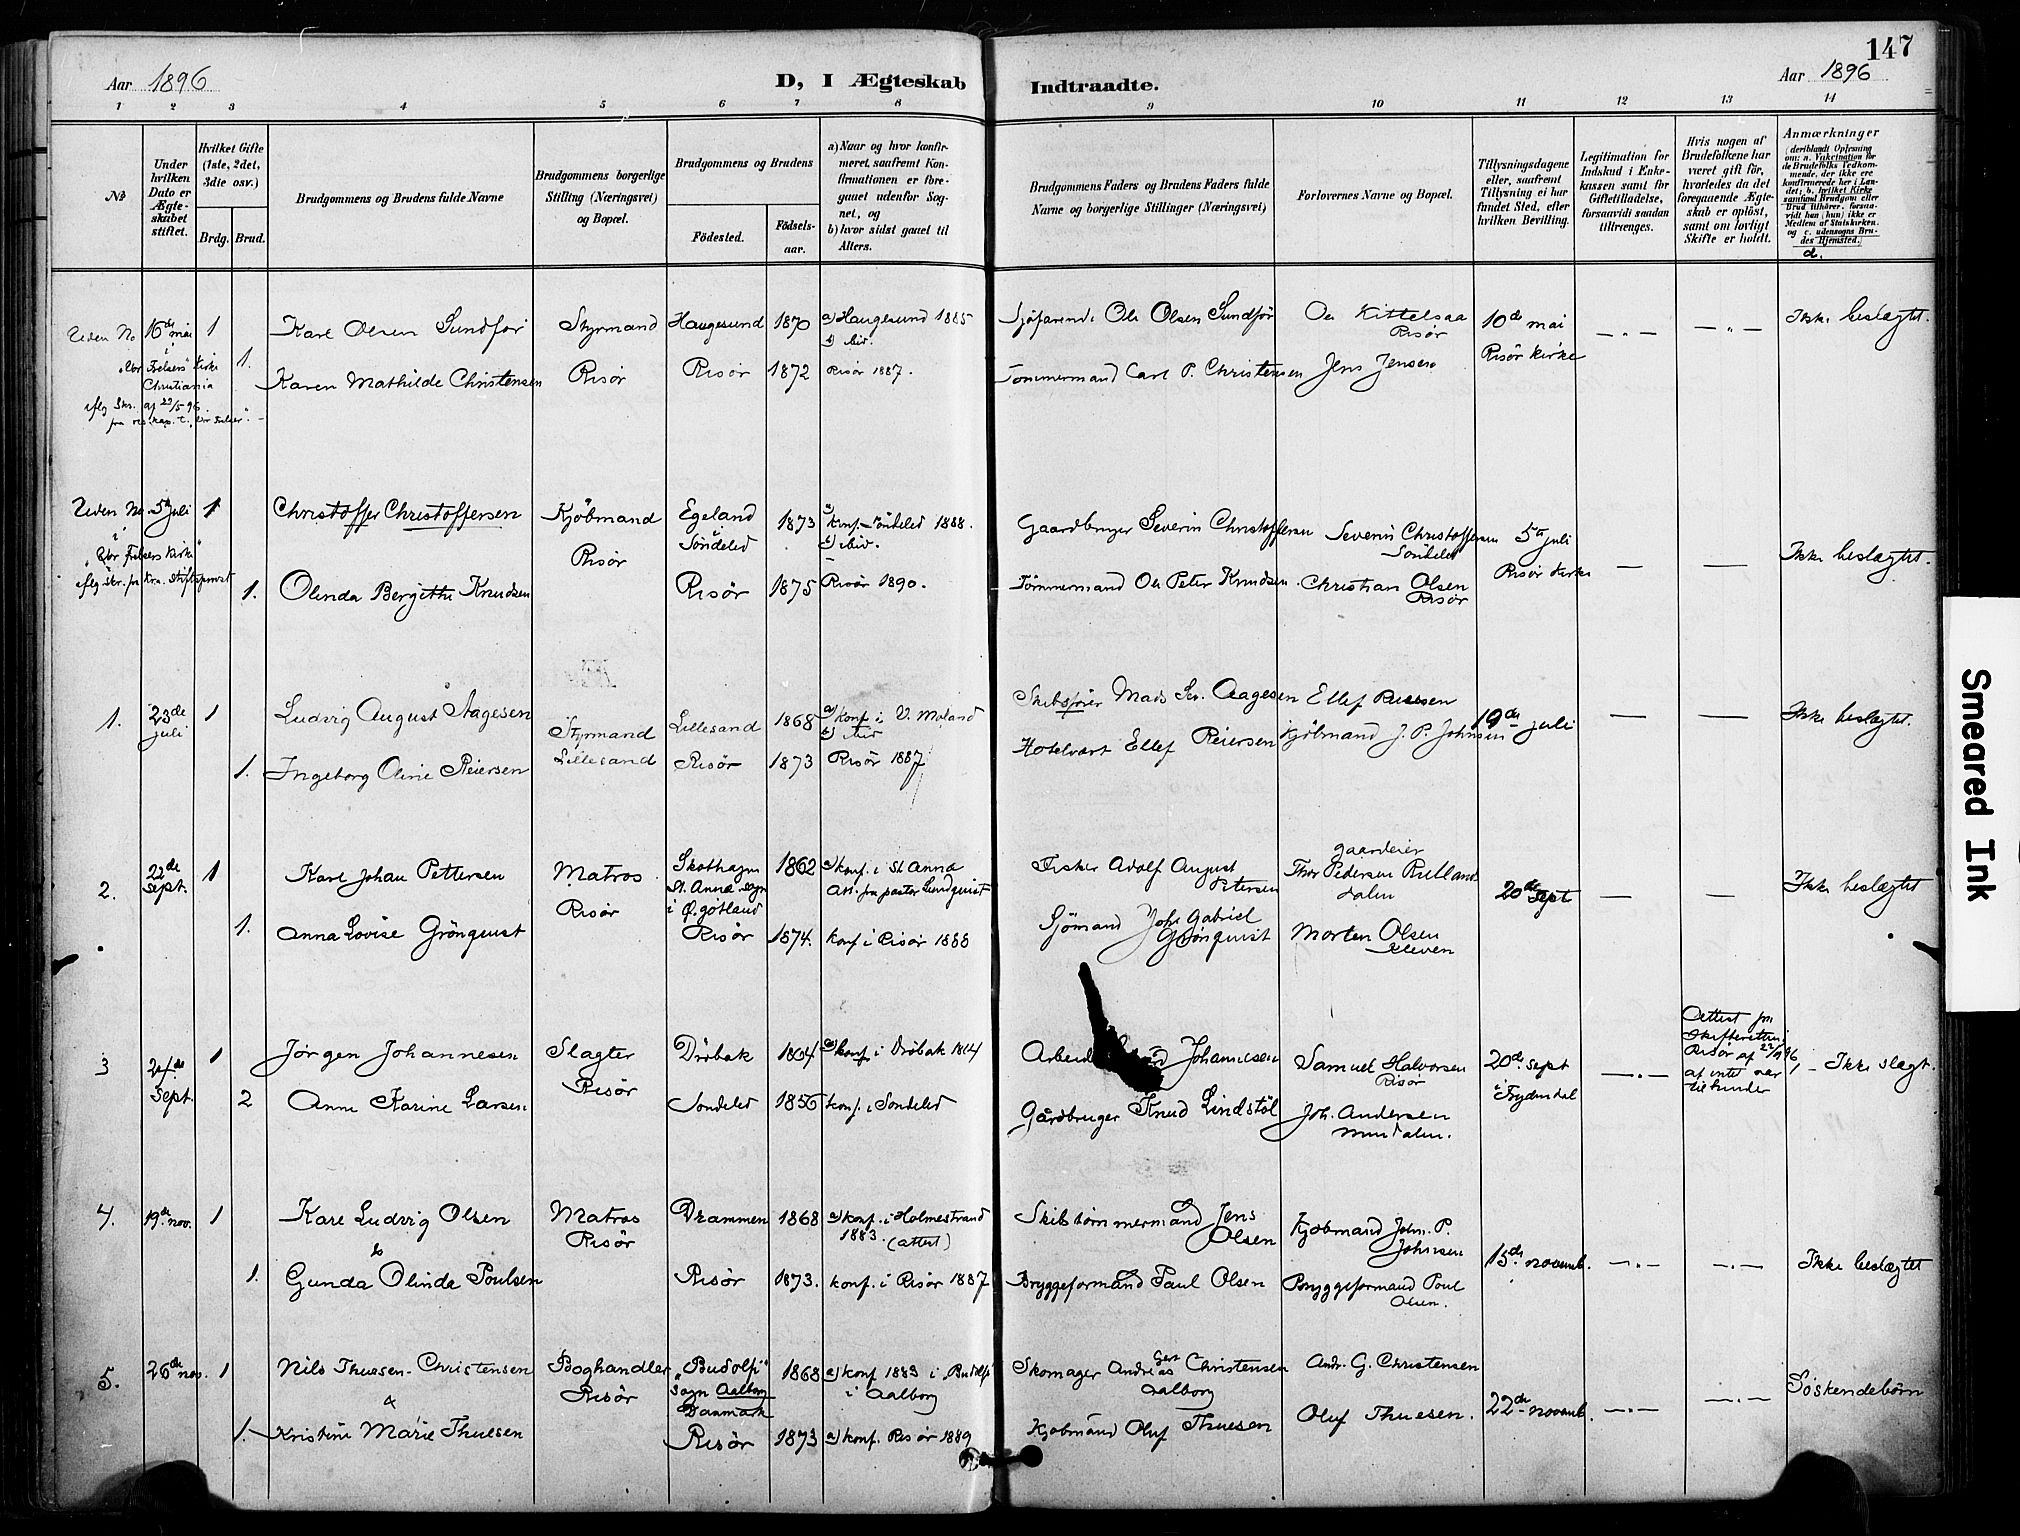 147
Aar 1896
D, I Ægteskab
Indtraadte.
Aar 1896
1 2 3 4 5 6 7 8 9 10 11 12 13 14
No
Under hvilken Dato er Ægteskabet stiftet.
Hvilket Gifte (1ste, 2det, 3die osv.)
Brdg. Brud.
Brudgommens og Brudens fulde Navne
Brudgommens borgerlige Stilling (Næringsvei) og Bopæl.
Brudgommens og Brudens
Fødested.
Fødselsaar.
a) Naar og hvor konfirmeret, saafremt Konfirmationen er foregaaet udenfor Sognet, og
b) hvor sidst gaaet til Alters.
Brudgommens Faders og Brudens Faders fulde Navne og borgerlige Stillinger (Næringsvei)
Forlovernes Navne og Bopæl.
Tillysningsdagene eller, saafremt Tillysning ei har fundet Sted, efter hvilken Bevilling.
Legitimation for Indskud i Enkekassen samt for Giftetilladelse, forsaavidt saadan tiltrænges.
Hvis nogen af Brudefolkene har været gift før, hvorledes da det foregaaende Ægteskab er opløst, samt om lovligt Skifte er holdt.
Anmærkninger (deriblandt Oplysning om: a. Vakcination for de Brudefolks Vedkommende, der ikke ere konfirmerede her i Landet; b. hvilket Kirkesamfund Brudgom eller Brud tilhører, forsaavidt han (hun) ikke er Medlem af Statskirken, og c. udensogns Brudes Hjemsted.)
d.
Uden No 16de mai 1 Karl Olsen Sundfør Styrmand Haugesund 1870 a) Haugesund 1885 Sjøfarende Ole Olsen Sundfør Ole Kittelsaa Risør 10de mai Ikke beslægtet.
b) hid.
i "Vor Frelsers" Kirke Christiania
iflg Skr. af 29/5 96
1. Karen Mathilde Christensen Risør Risør 1872 Risør 1887. Tømmermand Carl P. Christensen Jens Jensen Risør Kirke
Uden No. 5te juli 1 Christoffer Christoffersen Kjøbmand Egeland Søndeled 1873 a) konf. Søndeled 1888. Gaardbruger Severin Christoffersen Severin Christoffersen Søndeled 5te juli Ikke beslægtet.
b) hid.
i "Vor Frelsers Kirke"
iflg skr. fra Kra. Stiftsprovst
Risør
1. Olinda Bergitte Knudsen Risør 1875 Risør 1890. Tømmermand Ole Peter Knudsen. Christian Olsen Risør Risør Kirke
1. 23de juli 1 Ludvig August Aagesen Styrmand Lillesand Lillesand 1868 a) konf i V. Moland b) hid Skibsfører Mads Aagesen Ellef Reiersen 19de juli Ikke beslægtet.
1. Ingeborg Oline Reiersen Risør 1873 Risør 1887 Hotelvært Ellef Reiersen Kjøbmand J. P. Johnsen
2. 22de sept. 1 Karl Johan Pettersen Matros Risør Skothagn St. Anna sogn i Ø. gøtland 1862 a) konf. i St Anna Att. fra pastor Lundquist Fisker Adolf August Petersen gaardeier Thor Pedersen 20de sept Ikke beslægtet
1. Anna Lovise Grönquist Risør 1874. konf i Risør 1888 Sjømand Johs Gabriel Grönquist Morten Olsen Kleven
3 24de Sept. 1 Jørgen Johannesen Slagter Risør Drøbak 1864 a) konf. i Drøbak Johannesen Samuel Halvorsen Risør 20de sept i Frydendal Attest fra Skifteretten i Risør af 22/9 96 at intet var til hinder Ikke slægt.
2 Anne Karine Larsen Søndeled 1856 konf. i Søndeled Gårdbruger Knud Lindstøl Joh. Andersen
4. 19de nov. 1 Karl Ludvig Olsen Matros Risør Drammen 1868 a) konf. i Holmestrand 1883. (attest) Skibstømmermand Jens Olsen Kjøbmand John. P. Johnsen 15de novemb. Ikke beslægtet
&
1. Gunda Olinda Poulsen Risør 1873. konf. i Risør 1887 Bryggeformand Paul Olsen Bryggeformand Poul Olsen.
5. 26de nov. 1 Nils Thuesen-Christensen Boghandler Risør "Budolfi" Sogn Aalborg Danmark 1868 a) konf 1883 i Budolfi i Aalborg Skomager Andreas Gert Christensen Aalborg Andr. G. Christensen 22de novemb. Søskendebørn
&
1. Kristine Marie Thuesen Risør 1873 a) konf. Risør 1889 Kjøbmand Oluf Thuesen Oluf Thuesen.
Smeared Ink